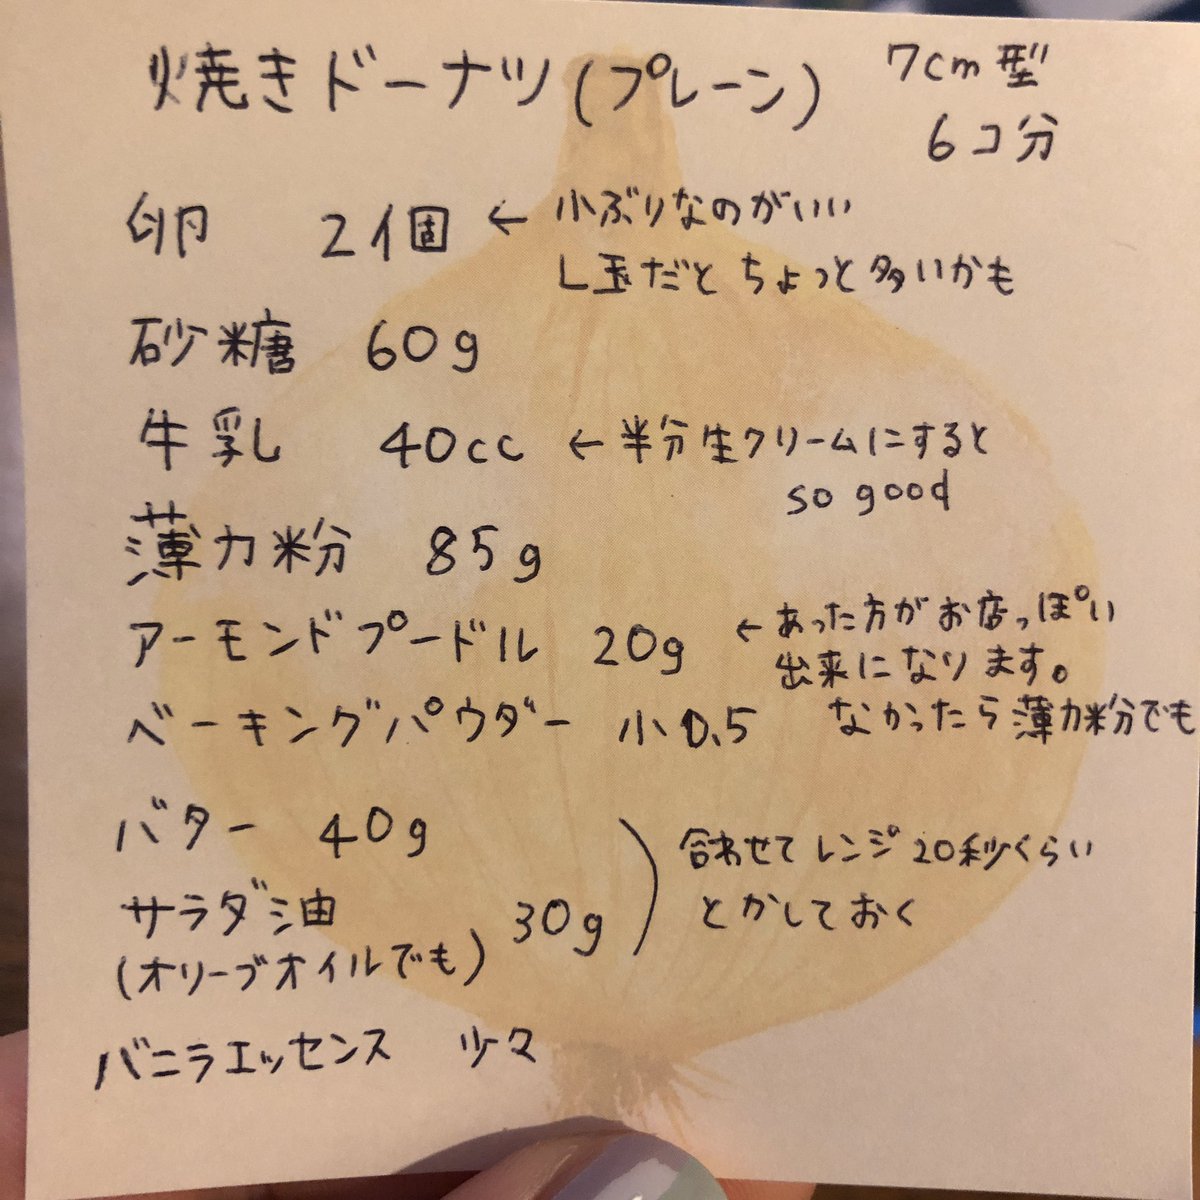 焼きドーナツ(プレーン) 7cm型
6コ分
卵 2個 ← 小ぶりなのがいい
L玉だとちょっと多いかも
砂糖 60g
牛乳 40cc ← 半分生クリームにすると
so good
薄力粉 85g
アーモンドプードル 20g ← あった方がお店っぽい
出来になります。
ベーキングパウダー 小0.5 なかったら薄力粉でも
バター 40g
合わせてレンジ20秒くらい
サラダ油 30g とかしておく
(オリーブオイルでも)
バニラエッセンス 少々